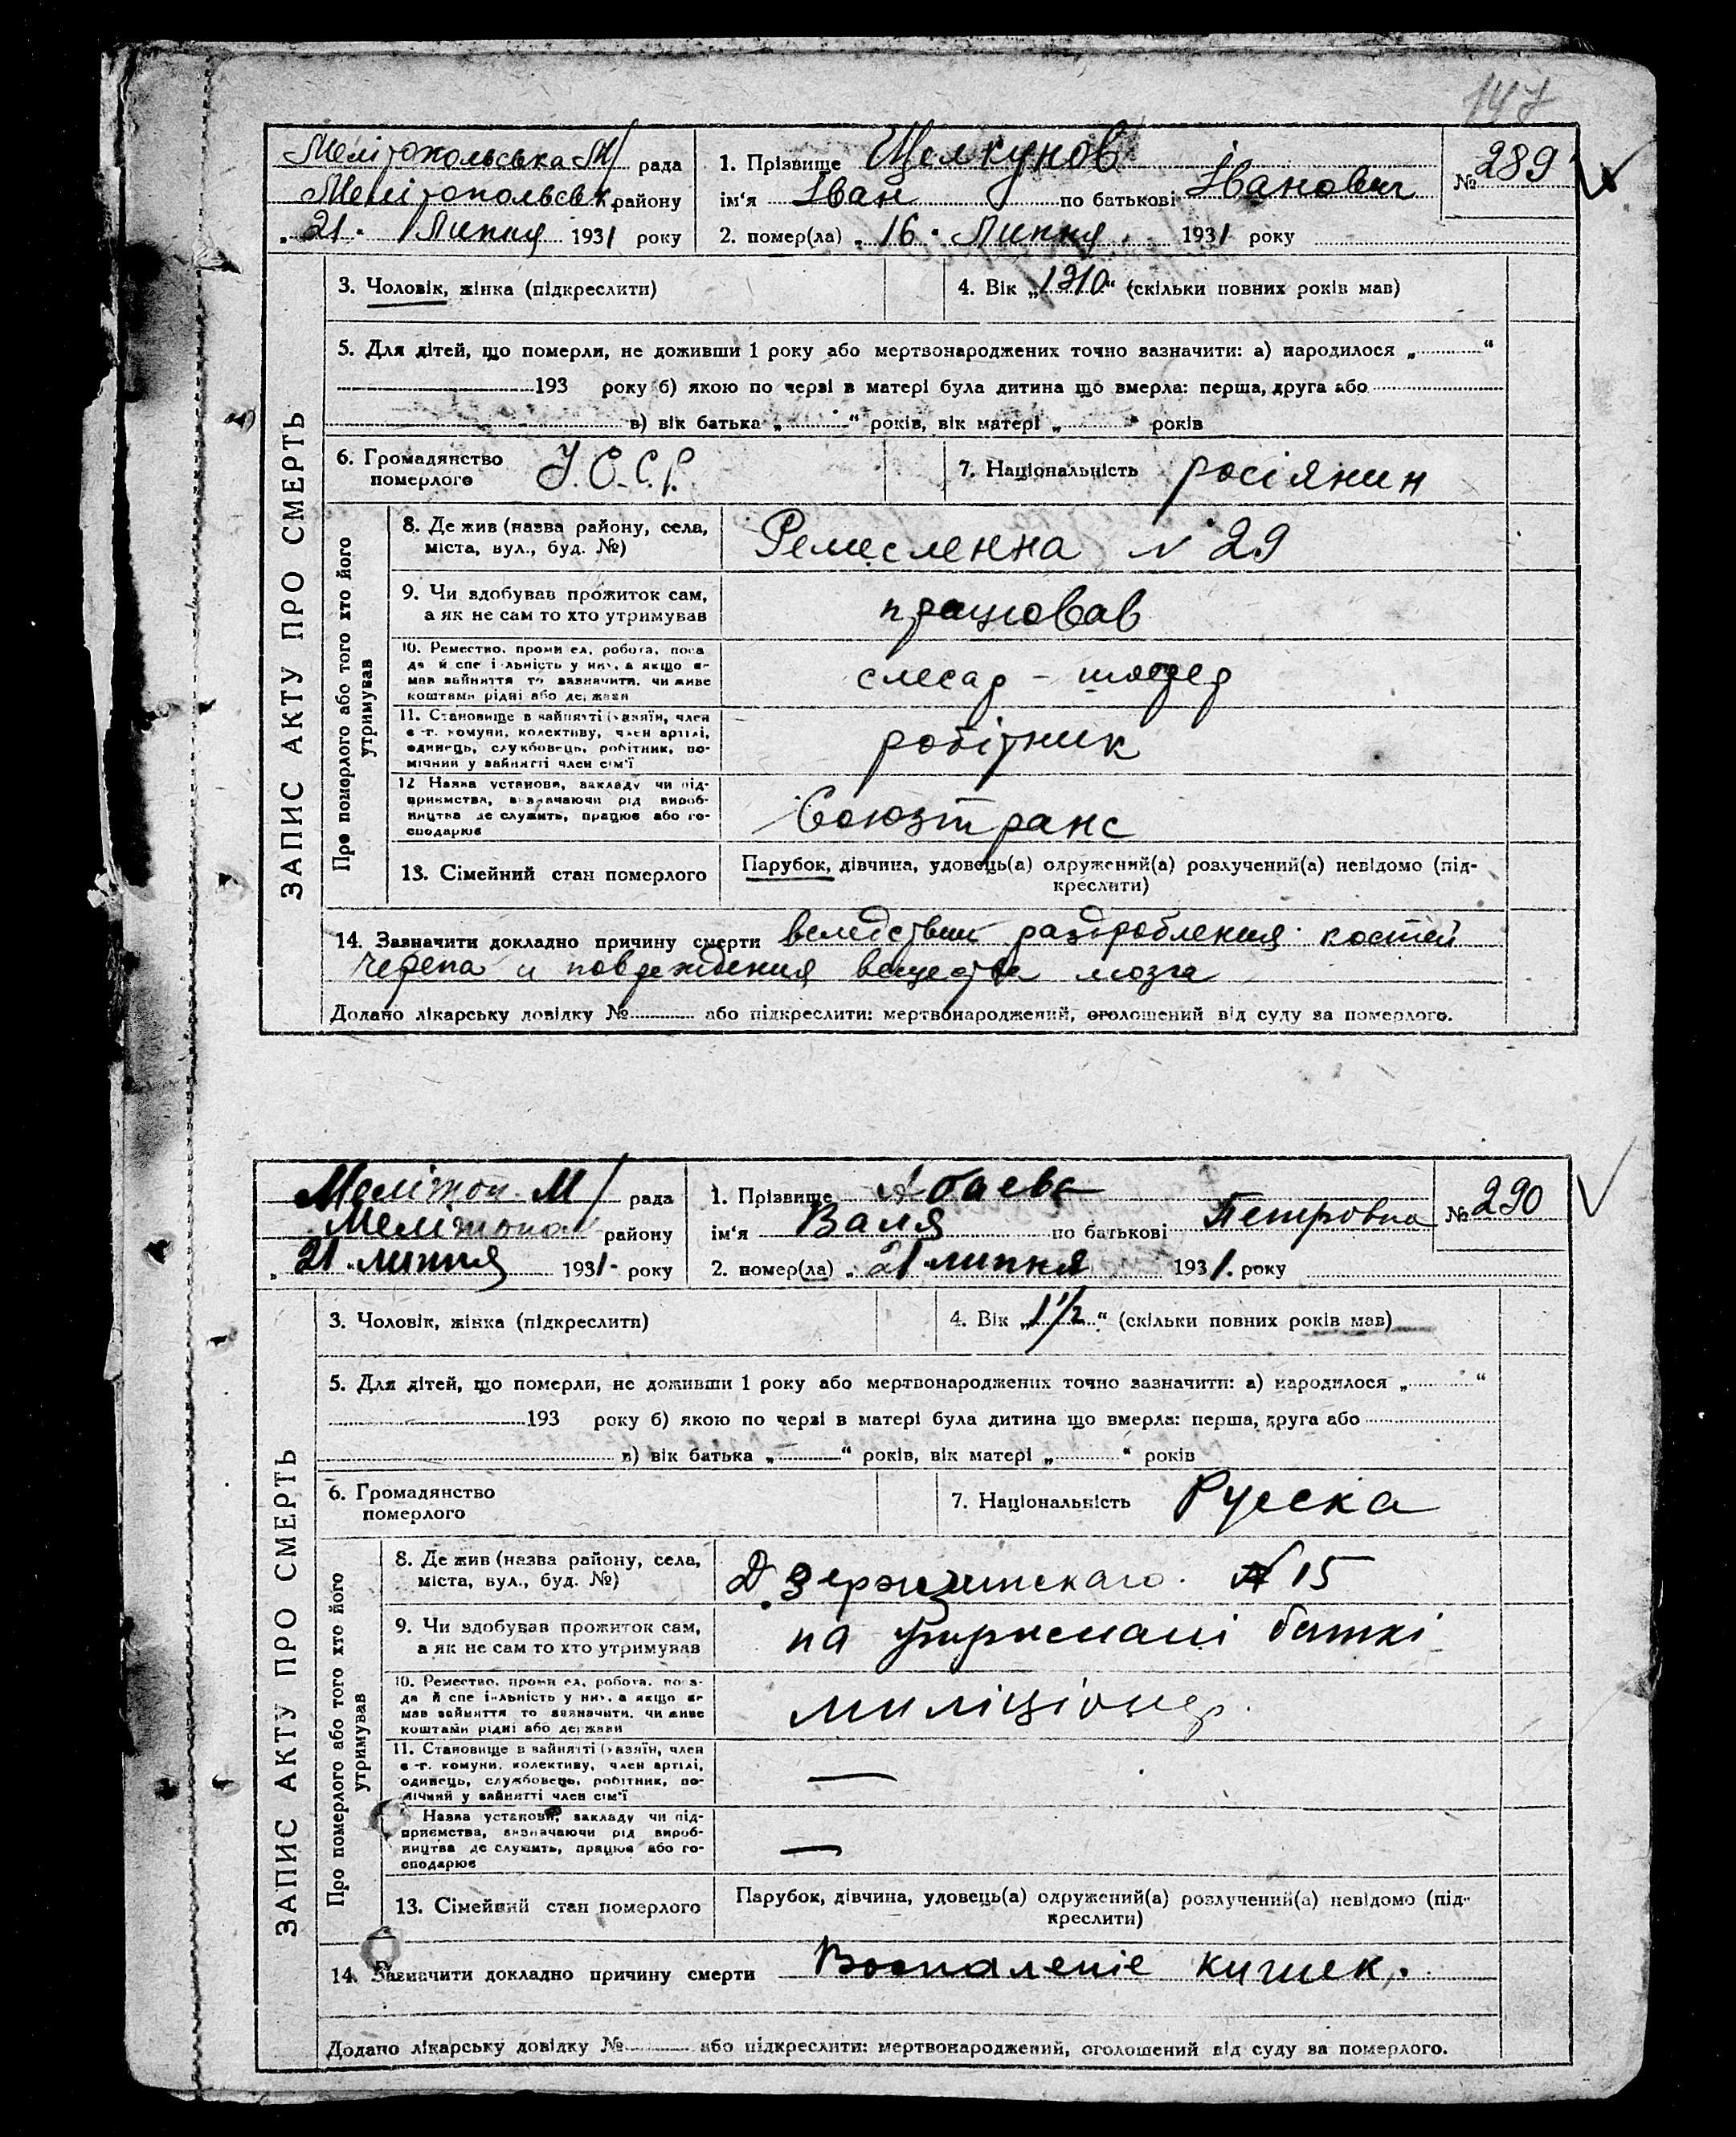 147
Мелітопольська М/ рада
1. Прізвище Щелкунов
№ 289
Мелітопольськ. району
ім'я Іван по батькові Іванович
„21" Липня 1931 року
2. помер(ла) „16" Липня 1931 року
ЗАПИС АКТУ ПРО СМЕРТЬ
3. Чоловік, жінка (підкреслити)
4. Вік „1910" (скільки повних років мав)
5. Для дітей, що померли, не доживши 1 року або мертвонароджених точно зазначити: а) народилося „ "
193 року б) якою по черзі в матері була дитина що вмерла: перша, друга або
в) вік батька „ " років, вік матері „ " років
6. Громадянство
померлого
У.С.С.Р.
7. Національність росіянин
Про померлого або того хто його
утримував
8. Де жив (назва району, села,
міста, вул., буд. №)
Ремесленна N 29
9. Чи здобував прожиток сам,
а як не сам то хто утримував
працював
10. Ремество, промисел, робота, поса-
да й спеціяльність у них, а якщо не
мав зайняття то зазначити, чи живе
коштами рідні або держави
слесар - шофер
11. Становище в зайнятті (хазяїн, член
с.-г. комуни, колективу, член артілі,
одинець, службовець, робітник, по-
мічний у зайнятті член сім'ї
робітник
12 Назва установи, закладу чи під-
приємства, визначаючи рід вироб-
ництва де служить, працює або го-
сподарює
Союзтранс
13. Сімейний стан померлого
Парубок, дівчина, удовець(а) одружений(а) розлучений(а) невідомо (під-
креслити)
14. Зазначити докладно причину смерти вследствии раздробления костей
черепа и повреждения вещества мозга
Додано лікарську довідку № або підкреслити: мертвонароджений, оголошений від суду за померлого.
Меліtоп М/ рада
1. Прізвище Абаева
№ 290
Мелітопол району
ім'я Валя по батькові Петровна
„21" липня 1931 року
2. помер(ла) „21" липня 1931. року
ЗАПИС АКТУ ПРО СМЕРТЬ
3. Чоловік, жінка (підкреслити)
4. Вік „1 1/2" (скільки повних років мав)
5. Для дітей, що померли, не доживши 1 року або мертвонароджених точно зазначити: а) народилося „ "
193 року б) якою по черзі в матері була дитина що вмерла: перша, друга або
в) вік батька „ " років, вік матері „ " років
6. Громадянство
померлого
7. Національність Русска
Про померлого або того хто його
утримував
8. Де жив (назва району, села,
міста, вул., буд. №)
Дзержинскаго. N 15
9. Чи здобував прожиток сам,
а як не сам то хто утримував
на утримані батькі
10. Ремество, промисел, робота, поса-
да й спеціяльність у них, а якщо не
мав зайняття то зазначити, чи живе
коштами рідні або держави
миліціонер.
11. Становище в зайнятті (хазяїн, член
с.-г. комуни, колективу, член артілі,
одинець, службовець, робітник, по-
мічний у зайнятті член сім'ї
—
Назва установи, закладу чи під-
приємства, визначаючи рід вироб-
ництва де служить, працює або го-
сподарює
—
13. Сімейний стан померлого
Парубок, дівчина, удовець(а) одружений(а) розлучений(а) невідомо (під-
креслити)
14. Зазначити докладно причину смерти Воспаленіе кишек.
Додано лікарську довідку № або підкреслити: мертвонароджений, оголошений від суду за померлого.